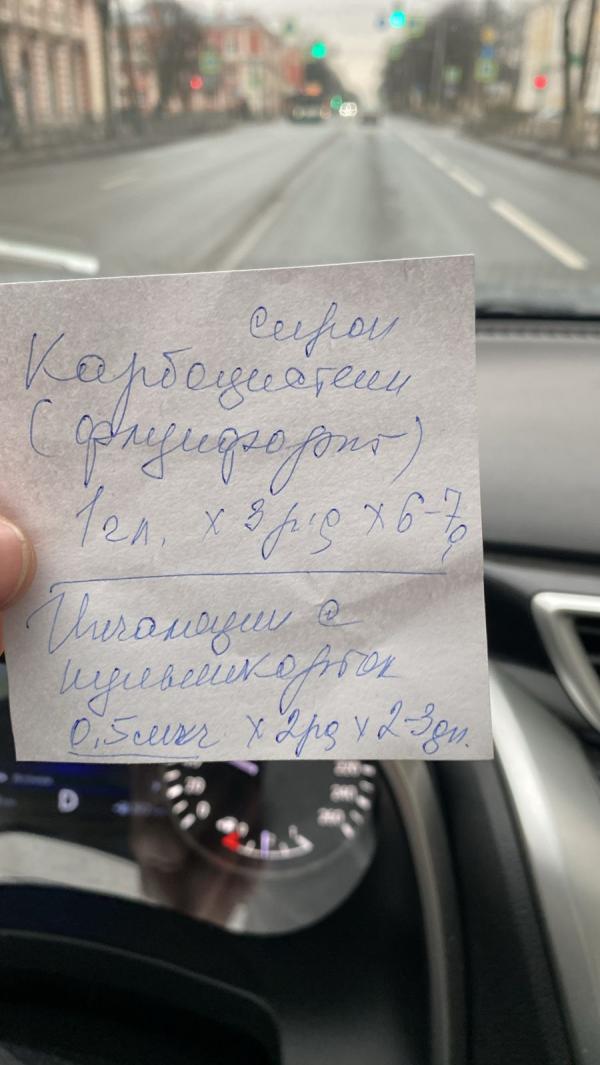 Сироп
Карбоцистеин
(флуифорт)
1 чл. х 3 р/д х 6-7д
Ингаляции с
пульмикортом
0,5 мкг х 2рд х 2-3дн.
D
20
0
220
240
260